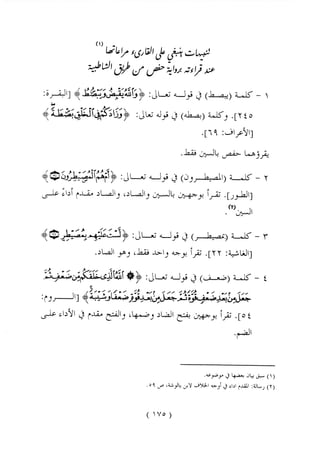 تنبيهات ينبغي على القارىء مراعاتها (١)
عند قراءته برواية حفص من طريق الشاطبية
١ – كلمة (يبصط) في قوله تعالى: ﴿وَٱللَّهُ يَقۡبِضُ وَيَبۡصُۜطُ﴾ [البقرة:
٢٤٥]. وكلمة (بصطة) في قوله تعالى: ﴿وَزَادَكُمۡ فِي ٱلۡخَلۡقِ بَصۜۡطَةٗ﴾
[الأعراف: ٦٩].
يقرؤهما حفص بالسين فقط.
٢ – كلمة (المصيطرون) في قوله تعالى: ﴿أَمۡ هُمُ ٱلۡمُصَۜيۡطِرُونَ ٣٧﴾
[الطور]. تقرأ بوجهين بالسين وبالصاد، وبالصاد مقدم أداءً على
السين (٢).
٣ – كلمة (بمصيطر) في قوله تعالى: ﴿لَّسۡتَ عَلَيۡهِم بِمُصَيۡطِرٍ ٢٢﴾
[الغاشية: ٢٢]. تقرأ بوجه واحد فقط، وهو الصاد.
٤ – كلمة (ضعف) في قوله تعالى: ﴿۞ ٱللَّهُ ٱلَّذِي خَلَقَكُم مِّن ضَعۡفٖ ثُمَّ
جَعَلَ مِنۢ بَعۡدِ ضَعۡفٖ قُوَّةٗ ثُمَّ جَعَلَ مِنۢ بَعۡدِ قُوَّةٖ ضَعۡفٗا وَشَيۡبَةٗ﴾ [الروم:
٥٤]. تقرأ بوجهين بفتح الضاد وضمها، والفتح مقدم في الأداء على
الضم.
(١) سبق بيان بعضها في موضوعه.
(٢) رسالة: المقدم أداء في أوجه الخلاف لابن يالوشة، ص ٥٩.
(١٧٥)